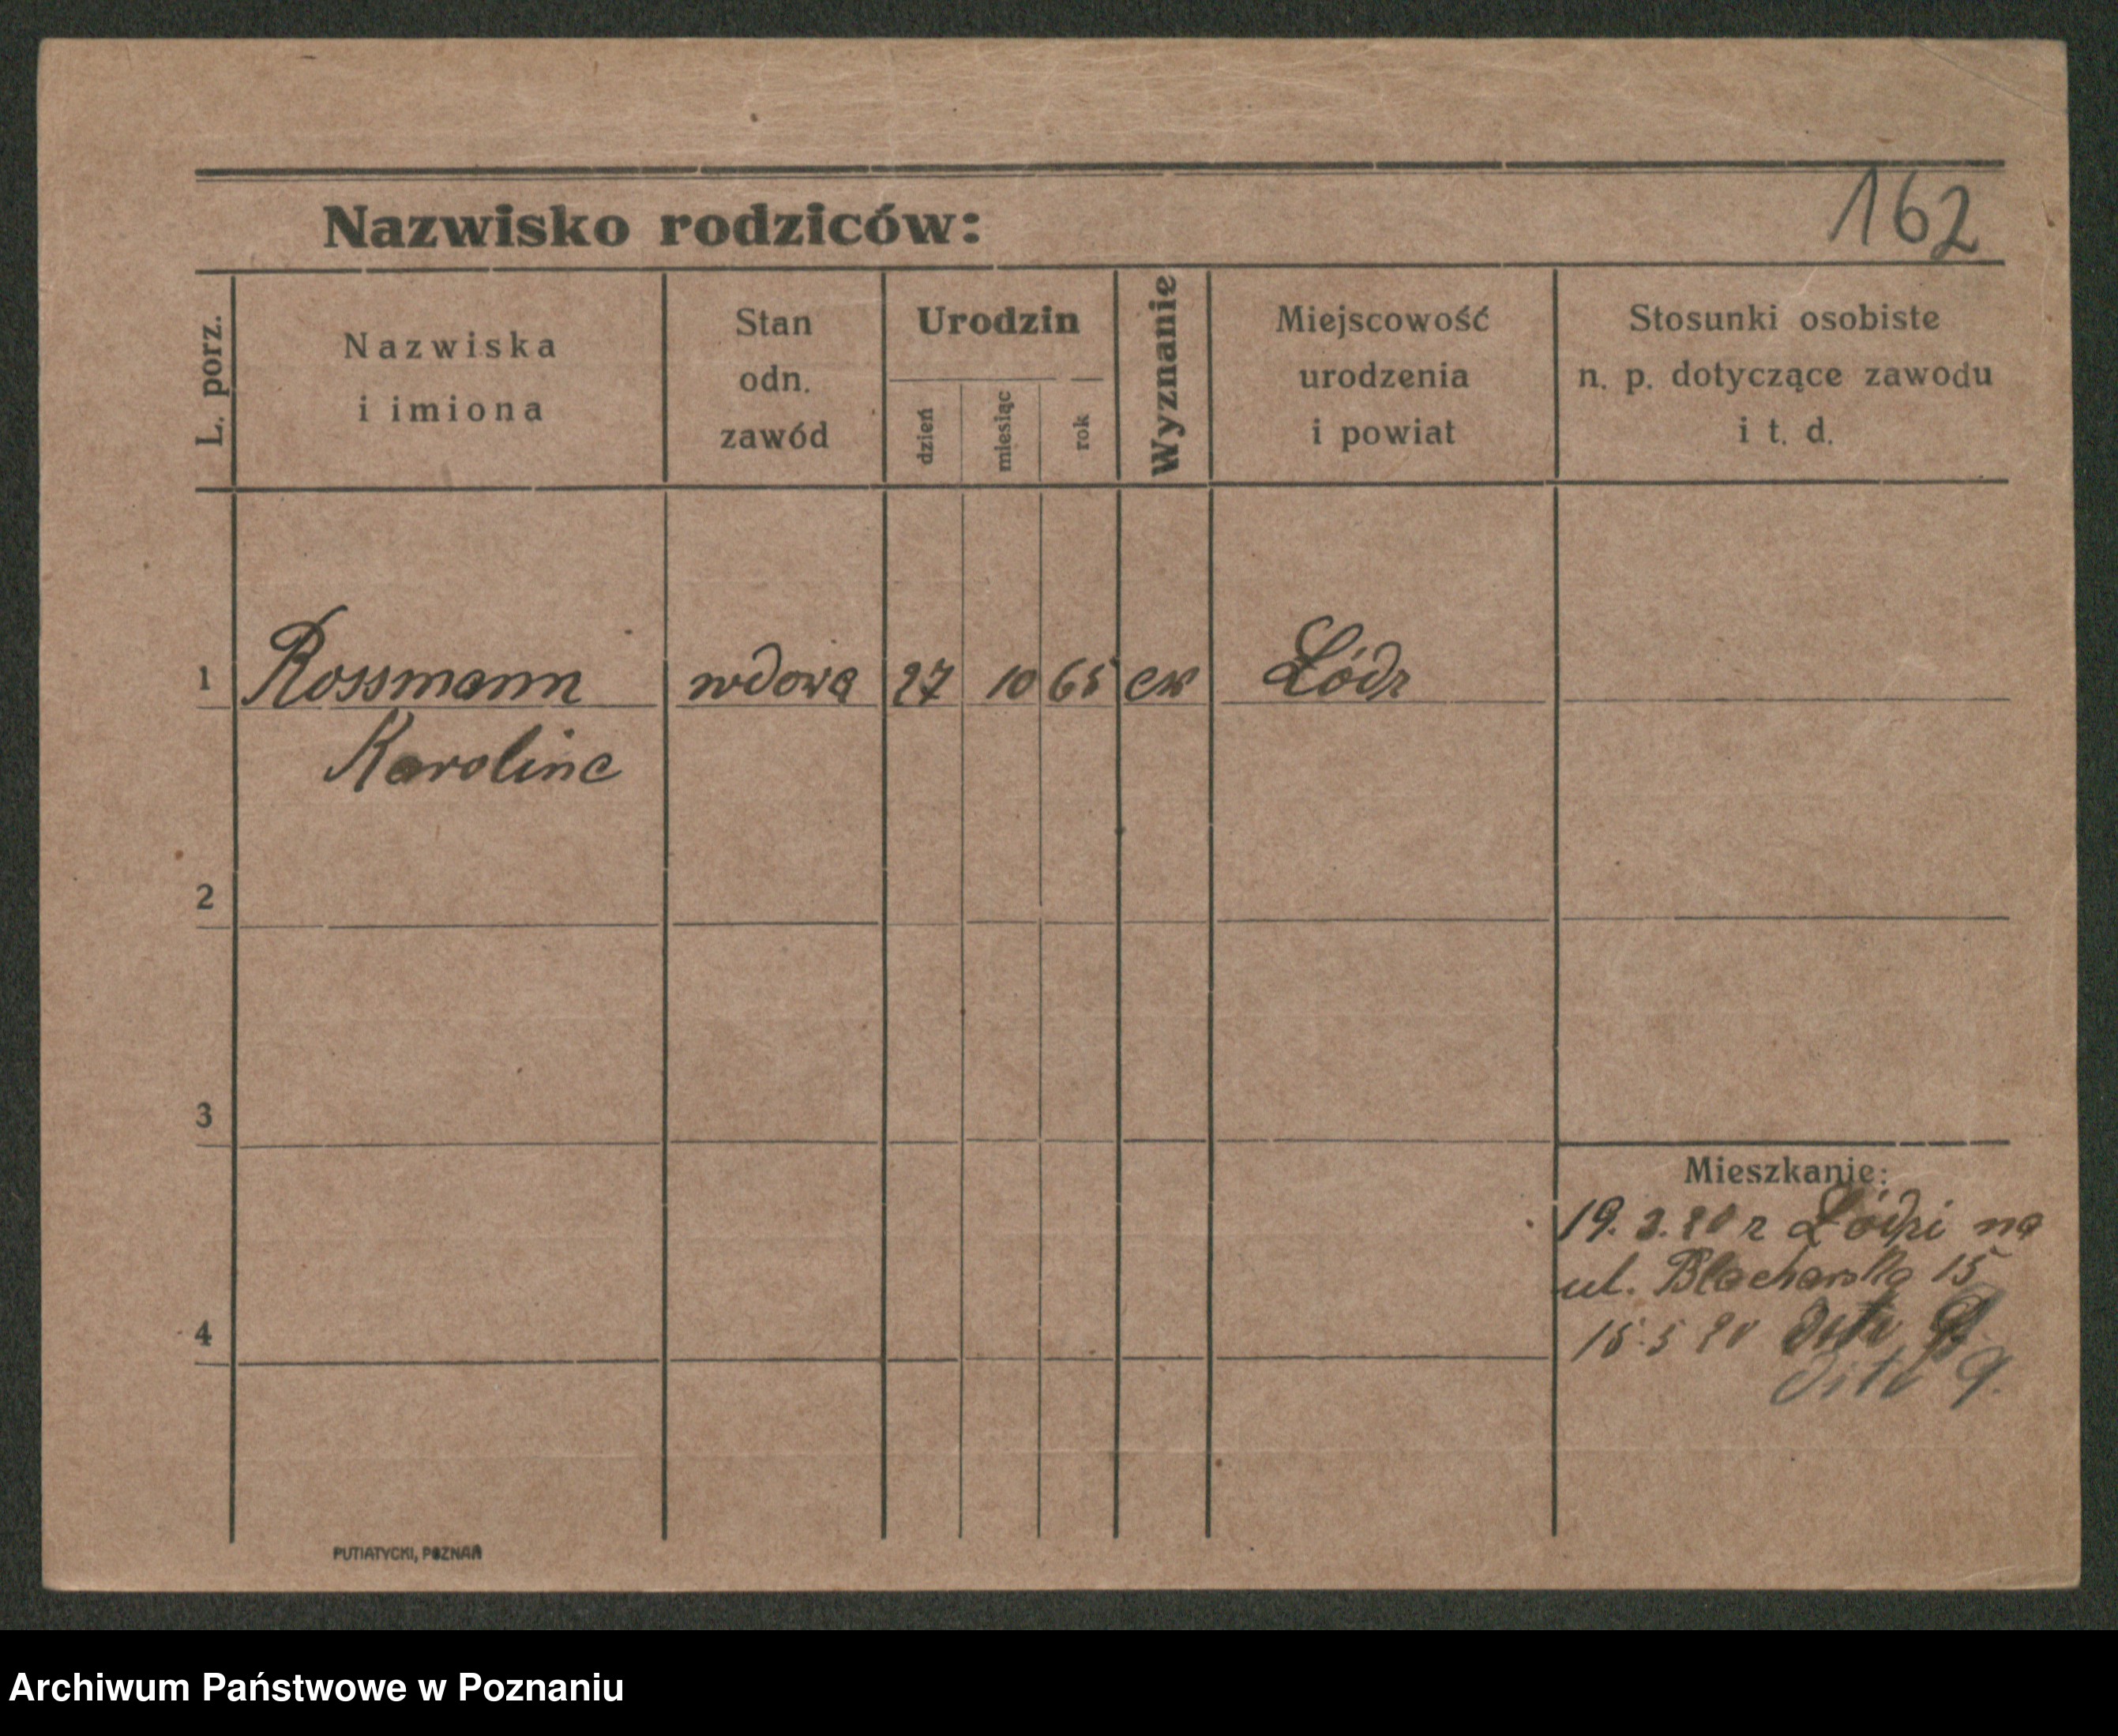 162
Nazwisko rodziców:
L. porz.
Nazwiska
i imiona
Stan
odn.
zawód
Urodzin
dzień
miesiąc
rok
Wyznanie
Miejscowość
urodzenia
i powiat
Stosunki osobiste
n. p. dotyczące zawodu
i t. d.
1 Rossmann wdowa 27 10 65 ew Łódz
Karoline
2
3
Mieszkanie:
19. 3. 20 z Łódzi na
ul. Blacharska 15
4
15. 5 20 dito 9
dito 9.
PUTIATYCKI, POZNAŃ
Archiwum Państwowe w Poznaniu